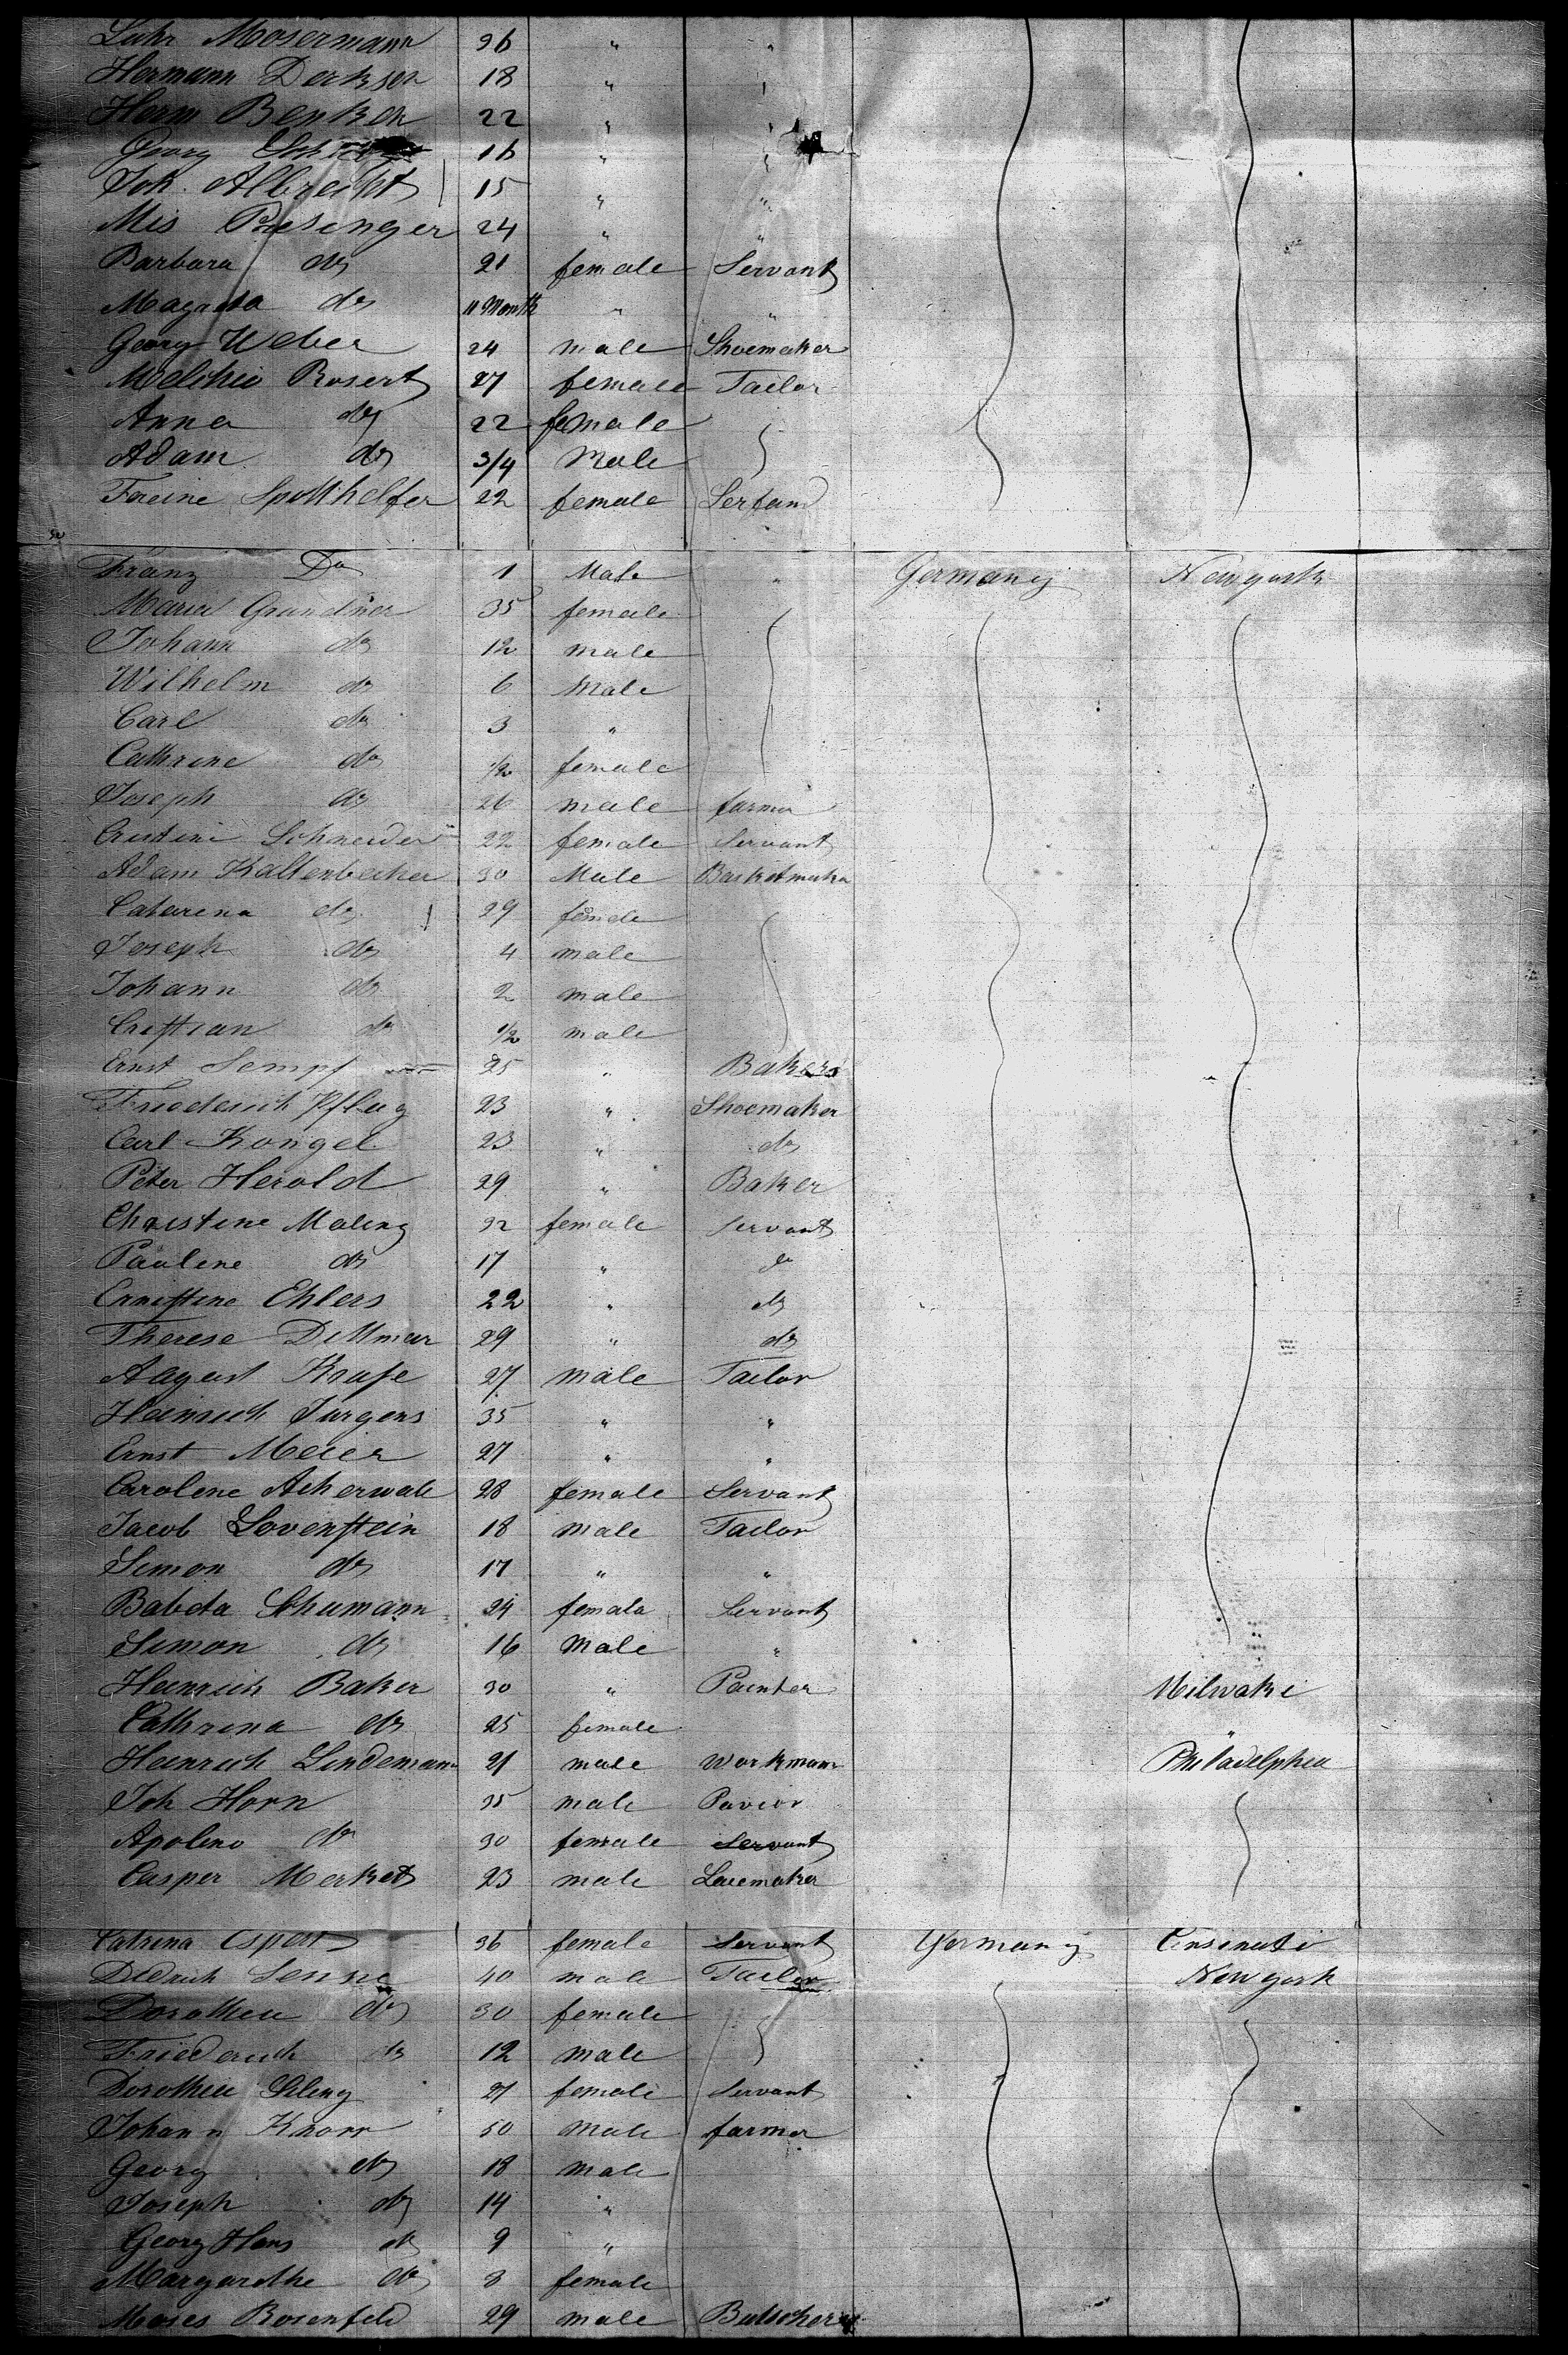 Lühr Mosermann 36 " "
Hermann Derksen 18 " "
Herm Benken 22 " "
Georg 16 " "
Joh. Albrecht 15 " "
Mis Poesinger 24 " "
Barbara do 21 female Servant
Magreta do 11 Month " "
Georg Weber 24 male Shoemaker
Melchio Rosert 27 female Tailor
Anna do 22 female
Adam do 3/4 Male
Spotthelfer 22 female Serfand
Franz Do 1 Male " Germany Newyork
Maria Grundner 35 female
Johann do 12 male
Wilhelm do 6 Male
Carl do 3 "
Cathrine do 1/2 female
Joseph do 26 male farmer
Cristine Schneider 22 female Servant
Adam Kaltenbecher 30 Male Basketmaker
Catarina do 29 female
Joseph do 4 male
Johann do 2 male
Cristian do 1/2 male
Ernst Sempf 25 " Baker
Friederich Pflug 23 " Shoemaker
Carl Kongel 23 " do
Peter Herold 29 " Baker
Christine Maling 32 female Servant
Pauline do 17 " do
Ernistine Ehlers 22 " do
Therese Dittmar 29 " do
August Kruse 27 male Tailor
Heinrich Jurgens 35 " "
Ernst Meier 27 " "
Carolene Acherwale 28 female Servant
Jacob Lovenstein 18 male Tailor
Simon do 17 " "
Babeta Schumann 24 female Servant
Simon do 16 Male "
Heinrich Baker 30 " Painter Milwaki
Cathrina do 25 female "
Heinrich Lindemann 21 male Workman Philadelphia
Joh Horn 35 male Pavior
Apoleno do 30 female Servant
Casper Merket 23 male Lacemaker
Catrina Espert 36 female Servant Germany Cinsinati
Didrich Sensne 40 male Tailor Newyork
Dorothea do 30 female
Friederich do 12 male
Dorothea Schling 21 female Servant
Johann Knorr 50 Male farmer
Georg do 18 male
Joseph do 14 "
Georg Hans do 9 "
Margarethe do 8 female
Moses Rosenfeld 29 male Butscher